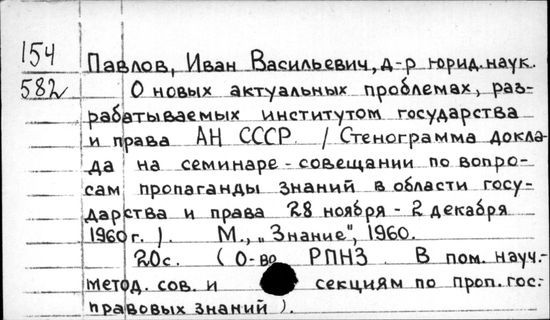 154
582
Павлов, Иван Васильевич, д-р юрид. наук.
О новых актуальных проблемах, раз-
рабатываемых институтом государства
и права АН СССР. / Стенограмма докла-
да на семинаре-совещании по вопро-
сам пропаганды знаний в области госу-
дарства и права 28 ноября - 2 декабря
1960 г. ). М., „Знание", 1960.
20с. ( О-во РПНЗ. В пом. науч.-
метод. сов. и секциям по проп. гос.-
правовых знаний ).